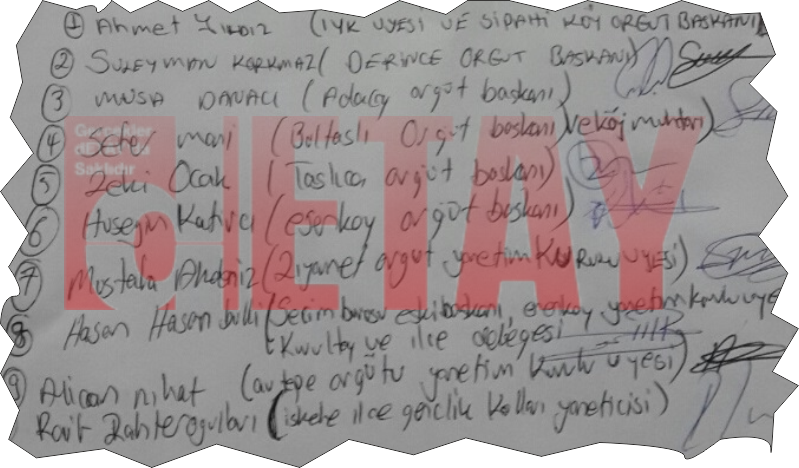 1 Ahmet Yıldız (İYK UYESİ VE SİPAHİ KÖY ORGUT BASKANI)
2 SULEYMAN KORKMAZ ( DERINCE ORGUT BASKANI)
3 MUSA DANACI (Adaçay orgüt baskanı)
4 Sefer mani (Boltaslı Orgüt baskanı) ve köy muhtarı)
5 Zeki Ocak (Taslıca orgüt baskanı)
6 Huseyin Katırcı (esenkoy orgüt baskanı)
7 Mustafa Akdeniz (Ziyamet orgut yonetim KURULU UYESİ)
8 Hasan Hasan (Secim burosu eski baskanı, erenkoy yonetim kurulu uye
Kurultay ve ilce delegesi
9 Alican nihat (avtepe orgütu yonetim Kurulu uyesi)
Raif (iskele ilce genclik Kolları yoneticisi)
Gerçekler
dETAY'da
Saklıdır
dETAY